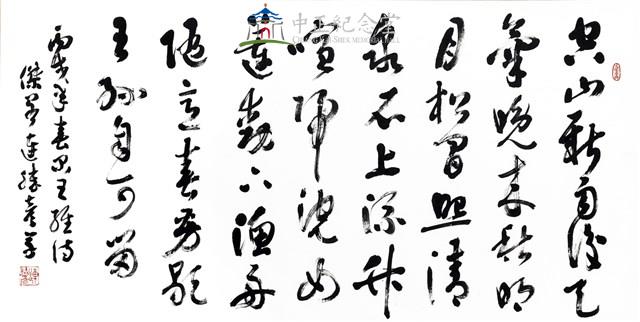 中正紀念堂
CHIANG KAI-SHEK MEMORIAL HALL
空山新雨後天
氣晚來秋明
月松間照清
泉石上流竹
喧歸浣女
蓮動下漁舟
隨意春芳歇
王孫自可留
年春日王維詩
連勝彥